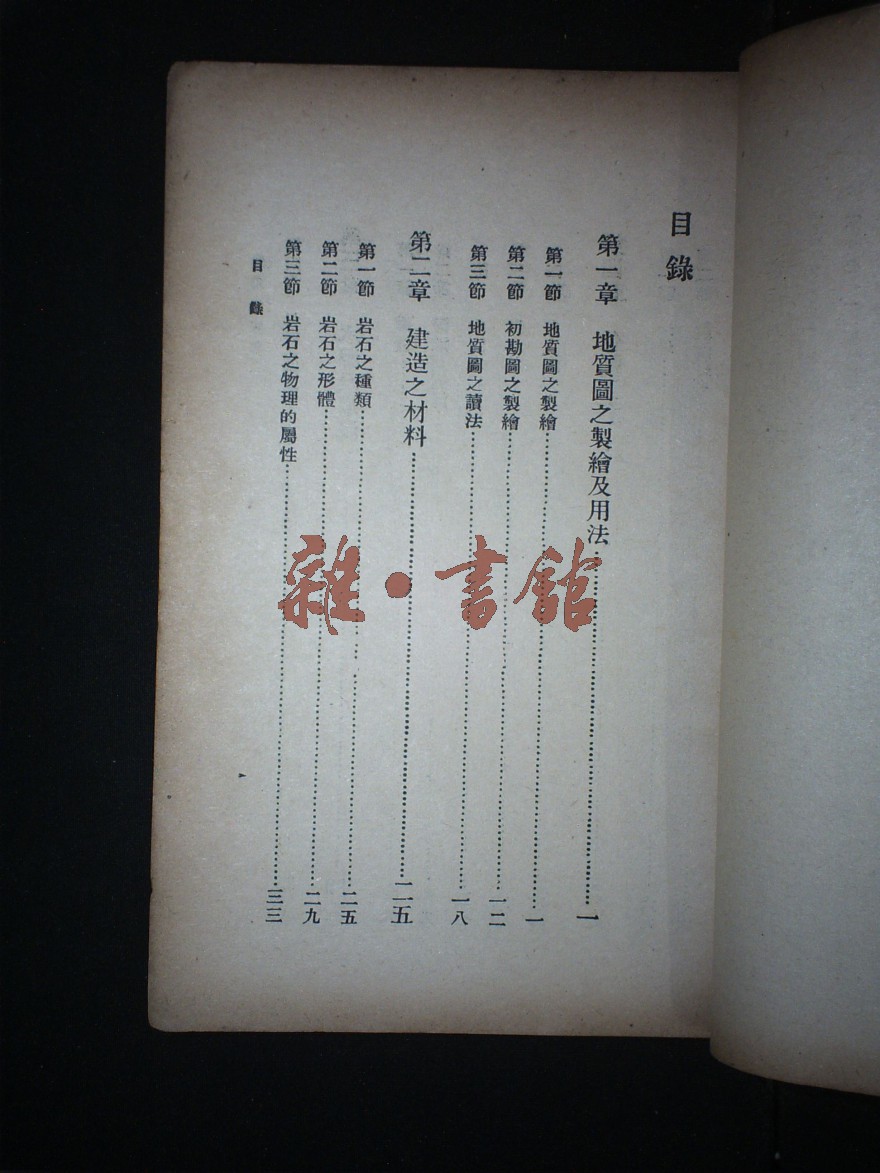 目錄
第一章　地質圖之製繪及用法……一
第一節　地質圖之製繪……一
第二節　初勘圖之製繪……一二
第三節　地質圖之讀法……一八
第二章　建造之材料……二五
第一節　岩石之種類……二五
第二節　岩石之形體……二九
第三節　岩石之物理的屬性……三三
目錄
雜·書館